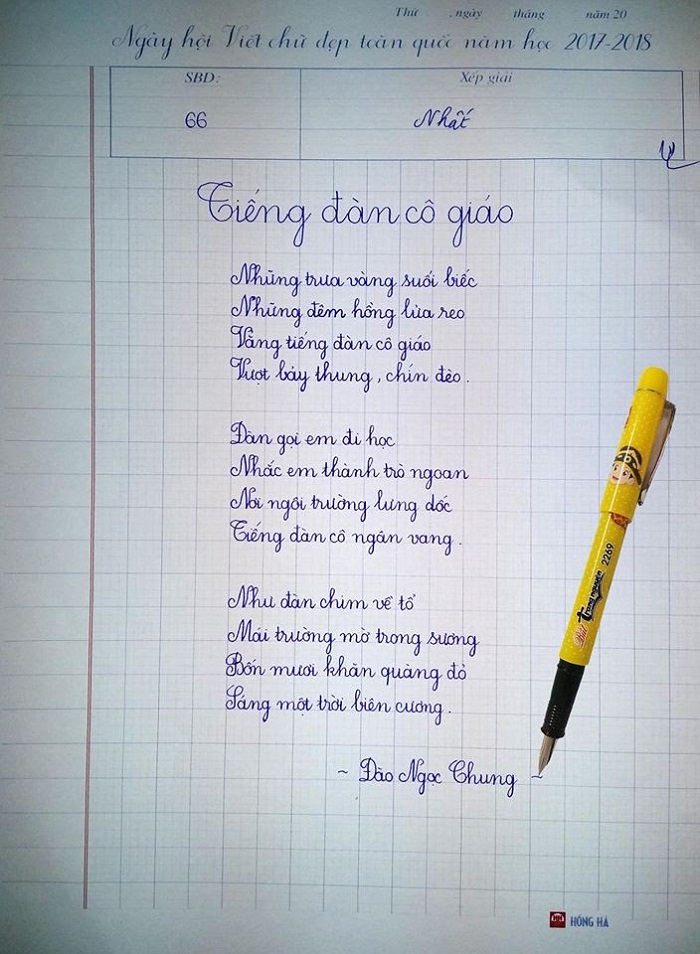 Thứ , ngày tháng năm 20
Ngày hội Viết chữ đẹp toàn quốc năm học 2017-2018
SBD: Xếp giải
66 Nhất
Tiếng đàn cô giáo
Những trưa vàng suối biếc
Những đêm hồng lửa reo
Vẳng tiếng đàn cô giáo
Vượt bảy thung, chín đèo.
Đàn gọi em đi học
Nhắc em thành trò ngoan
Nơi ngôi trường lưng dốc
Tiếng đàn cô ngân vang.
Như đàn chim về tổ
Mái trường mờ trong sương
Bốn mươi khăn quàng đỏ
Sáng một trời biên cương.
~ Đào Ngọc Chung ~
Bút Trạng nguyên 2269
HỒNG HÀ